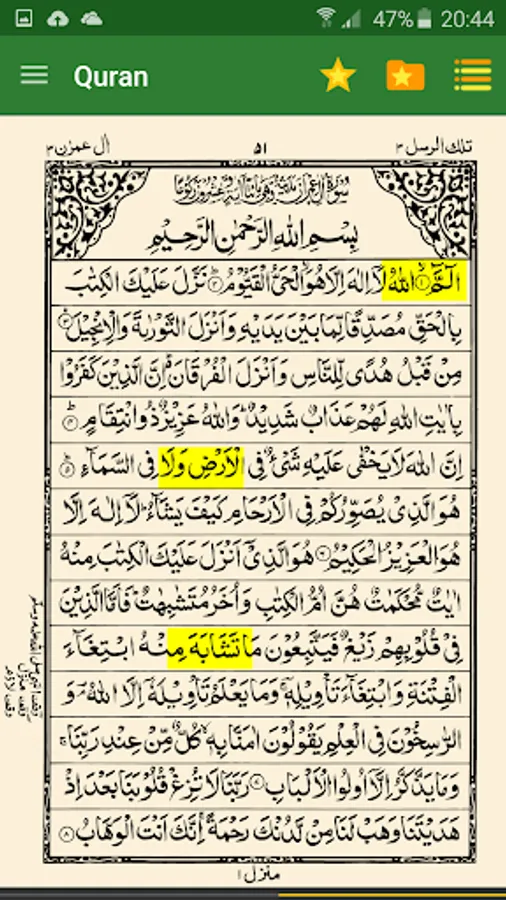 47% 20:44
Quran
تلك الرسل ٣ ٥١ اٰل عمرٰن ٣
بِسْمِ اللهِ الرَّحْمٰنِ الرَّحِيْمِ
الٓمّٓ ۝١ اللهُ لَآ اِلٰهَ اِلَّا هُوَ الْحَيُّ الْقَيُّوْمُ ۝٢ نَزَّلَ عَلَيْكَ الْكِتٰبَ
بِالْحَقِّ مُصَدِّقًا لِّمَا بَيْنَ يَدَيْهِ وَاَنْزَلَ التَّوْرٰىةَ وَالْاِنْجِيْلَ ۝٣
مِنْ قَبْلُ هُدًى لِّلنَّاسِ وَاَنْزَلَ الْفُرْقَانَ ؕ اِنَّ الَّذِيْنَ كَفَرُوْا
بِاٰيٰتِ اللهِ لَهُمْ عَذَابٌ شَدِيْدٌ ؕ وَاللهُ عَزِيْزٌ ذُو انْتِقَامٍ ۝٤
اِنَّ اللهَ لَا يَخْفٰى عَلَيْهِ شَيْءٌ فِي الْاَرْضِ وَلَا فِي السَّمَآءِ ۝٥
هُوَ الَّذِيْ يُصَوِّرُكُمْ فِي الْاَرْحَامِ كَيْفَ يَشَآءُ ؕ لَآ اِلٰهَ اِلَّا
هُوَ الْعَزِيْزُ الْحَكِيْمُ ۝٦ هُوَ الَّذِيْٓ اَنْزَلَ عَلَيْكَ الْكِتٰبَ مِنْهُ
اٰيٰتٌ مُّحْكَمٰتٌ هُنَّ اُمُّ الْكِتٰبِ وَاُخَرُ مُتَشٰبِهٰتٌ ؕ فَاَمَّا الَّذِيْنَ
فِيْ قُلُوْبِهِمْ زَيْغٌ فَيَتَّبِعُوْنَ مَا تَشَابَهَ مِنْهُ ابْتِغَآءَ
الْفِتْنَةِ وَابْتِغَآءَ تَاْوِيْلِهٖ ۚ وَمَا يَعْلَمُ تَاْوِيْلَهٗٓ اِلَّا اللهُ ؔ وَ
الرّٰسِخُوْنَ فِي الْعِلْمِ يَقُوْلُوْنَ اٰمَنَّا بِهٖ ۙ كُلٌّ مِّنْ عِنْدِ رَبِّنَا ۚ
وَمَا يَذَّكَّرُ اِلَّآ اُولُوا الْاَلْبَابِ ۝٧ رَبَّنَا لَا تُزِغْ قُلُوْبَنَا بَعْدَ اِذْ
هَدَيْتَنَا وَهَبْ لَنَا مِنْ لَّدُنْكَ رَحْمَةً ۚ اِنَّكَ اَنْتَ الْوَهَّابُ ۝٨
منزل ١